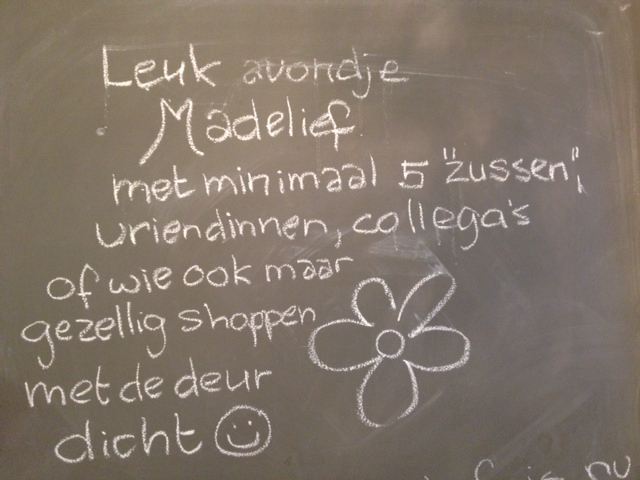 Leuk avondje
Madelief
met minimaal 5 "zussen",
vriendinnen, collega's
of wie ook maar
gezellig shoppen
met de deur
dicht
is nu